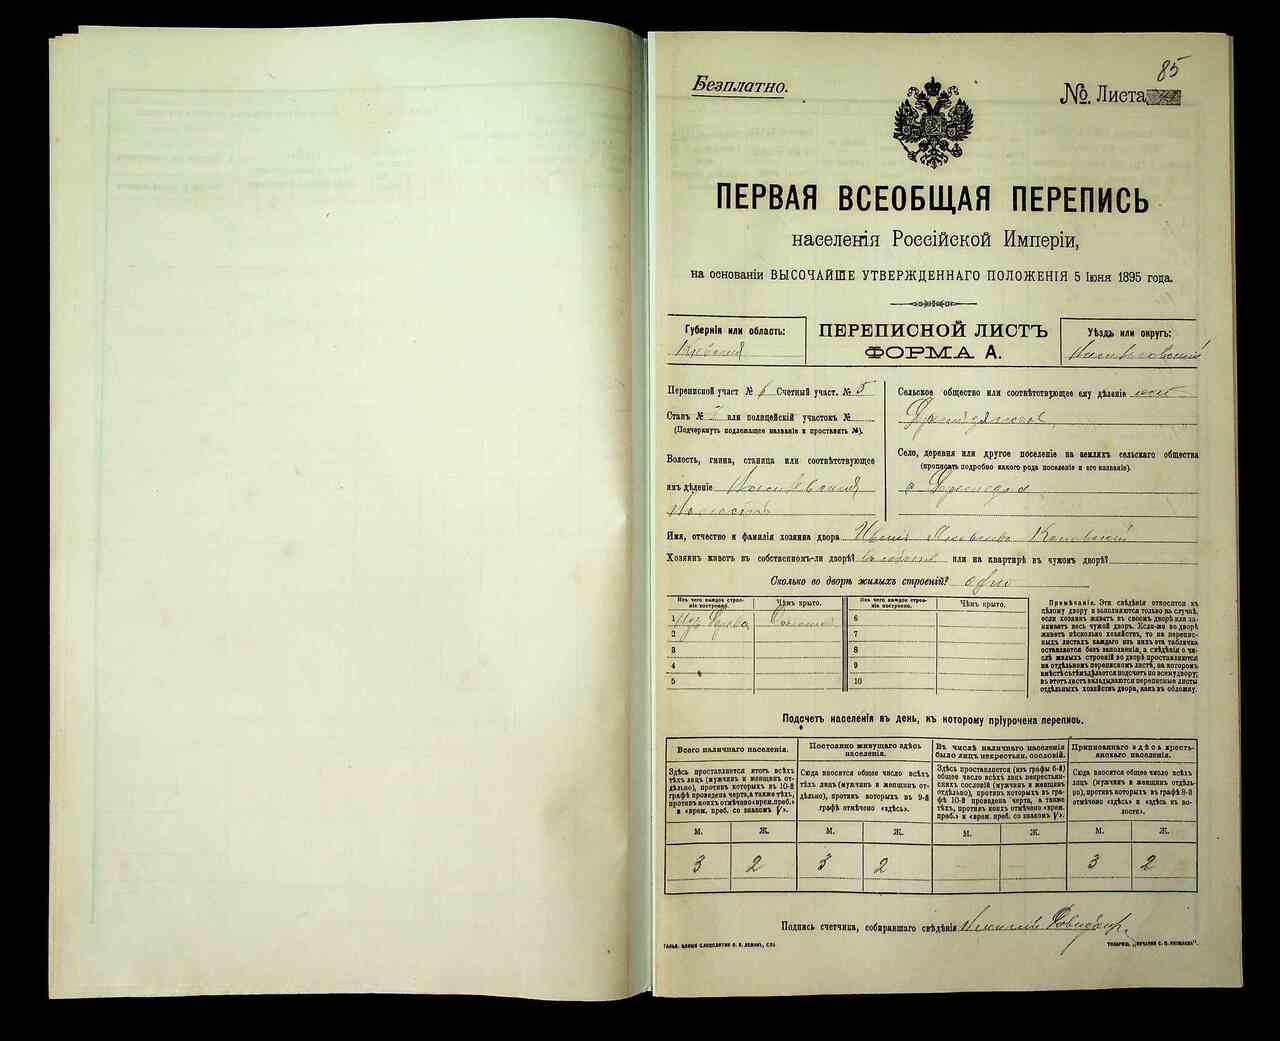 85
Безплатно.
№. Листа
ПЕРВАЯ ВСЕОБЩАЯ ПЕРЕПИСЬ
населенія Россійской Имперіи,
на основаніи ВЫСОЧАЙШЕ УТВЕРЖДЕННАГО ПОЛОЖЕНІЯ 5 Іюня 1895 года.
Губернія или область:
Кіевская
ПЕРЕПИСНОЙ ЛИСТЪ
ФОРМА А.
Уѣздъ или округъ:
Переписной участ № 6 Счетный участ. № 5
Станъ № или полицейскій участокъ №
(Подчеркнуть подлежащее названіе и проставить №).
Волость, гмина, станица или соотвѣтствующее
имъ дѣленіе
Сельское общество или соотвѣтствующее ему дѣленіе
Село, деревня или другое поселеніе на земляхъ сельскаго общества
(прописать подробно какого рода поселеніе и его названіе).
Имя, отчество и фамилія хозяина двора
Хозяинъ живетъ въ собственномъ-ли дворѣ? или на квартирѣ въ чужомъ дворѣ?
Сколько во дворѣ жилыхъ строеній? одно
Изъ чего каждое строе-
ніе построено.
Чѣмъ крыто.
Изъ чего каждое строе-
ніе построено.
Чѣмъ крыто.
1 Изъ дерева Соломою
2
3
4
5
6
7
8
9
10
Примѣчаніе. Эти свѣдѣнія относятся къ
цѣлому двору и заполняются только въ случаѣ,
если хозяинъ живетъ въ своемъ дворѣ или за-
нимаетъ весь чужой дворъ. Если-же во дворѣ
живетъ нѣсколько хозяйствъ, то на перепис-
ныхъ листахъ каждаго изъ нихъ эта табличка
оставляется безъ заполненія, а свѣдѣнія о чи-
слѣ жилыхъ строеній во дворѣ проставляются
на отдѣльномъ переписномъ листѣ, на которомъ
вмѣстѣ съ тѣмъ дѣлается подсчетъ по всему двору;
въ этотъ листъ вкладываются переписные листы
отдѣльныхъ хозяйствъ двора, какъ въ обложку.
Подсчетъ населенія въ день, къ которому пріурочена перепись.
Всего наличнаго населенія.
Здѣсь проставляется итогъ всѣхъ
тѣхъ лицъ (мужчинъ и женщинъ от-
дѣльно), противъ которыхъ въ 10-й
графѣ проведена черта, а также тѣхъ,
противъ коихъ отмѣчено «врем. преб.»
и «врем. преб. со знакомъ V».
Постоянно живущаго здѣсь
населенія.
Сюда вносится общее число всѣхъ
тѣхъ лицъ (мужчинъ и женщинъ от-
дѣльно), противъ которыхъ въ 9-й
графѣ отмѣчено «здѣсь».
Въ числѣ наличнаго населенія
было лицъ некрестьян. сословій.
Здѣсь проставляется (изъ графы 6-й)
общее число всѣхъ лицъ некрестьян-
скихъ сословій (мужчинъ и женщинъ
отдѣльно), противъ которыхъ въ гра-
фѣ 10-й проведена черта, а также
тѣхъ, противъ коихъ отмѣчено «врем.
преб.» и «врем. преб. со знакомъ V».
Приписаннаго здѣсь кресть-
янскаго населенія.
Сюда вносится общее число всѣхъ
лицъ (мужчинъ и женщинъ отдѣль-
но), противъ которыхъ въ графѣ 8-й
отмѣчено «здѣсь» и «здѣсь въ во-
лости».
М. Ж. М. Ж. М. Ж. М. Ж.
3 2 3 2 3 2
Подпись счетчика, собиравшаго свѣдѣнія